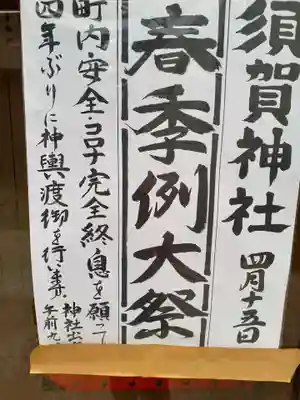 須賀神社 四月十五日
春季例大祭
町内安全・コロナ完全終息を願って
四年ぶりに神輿渡御を行います
神社出
午前九